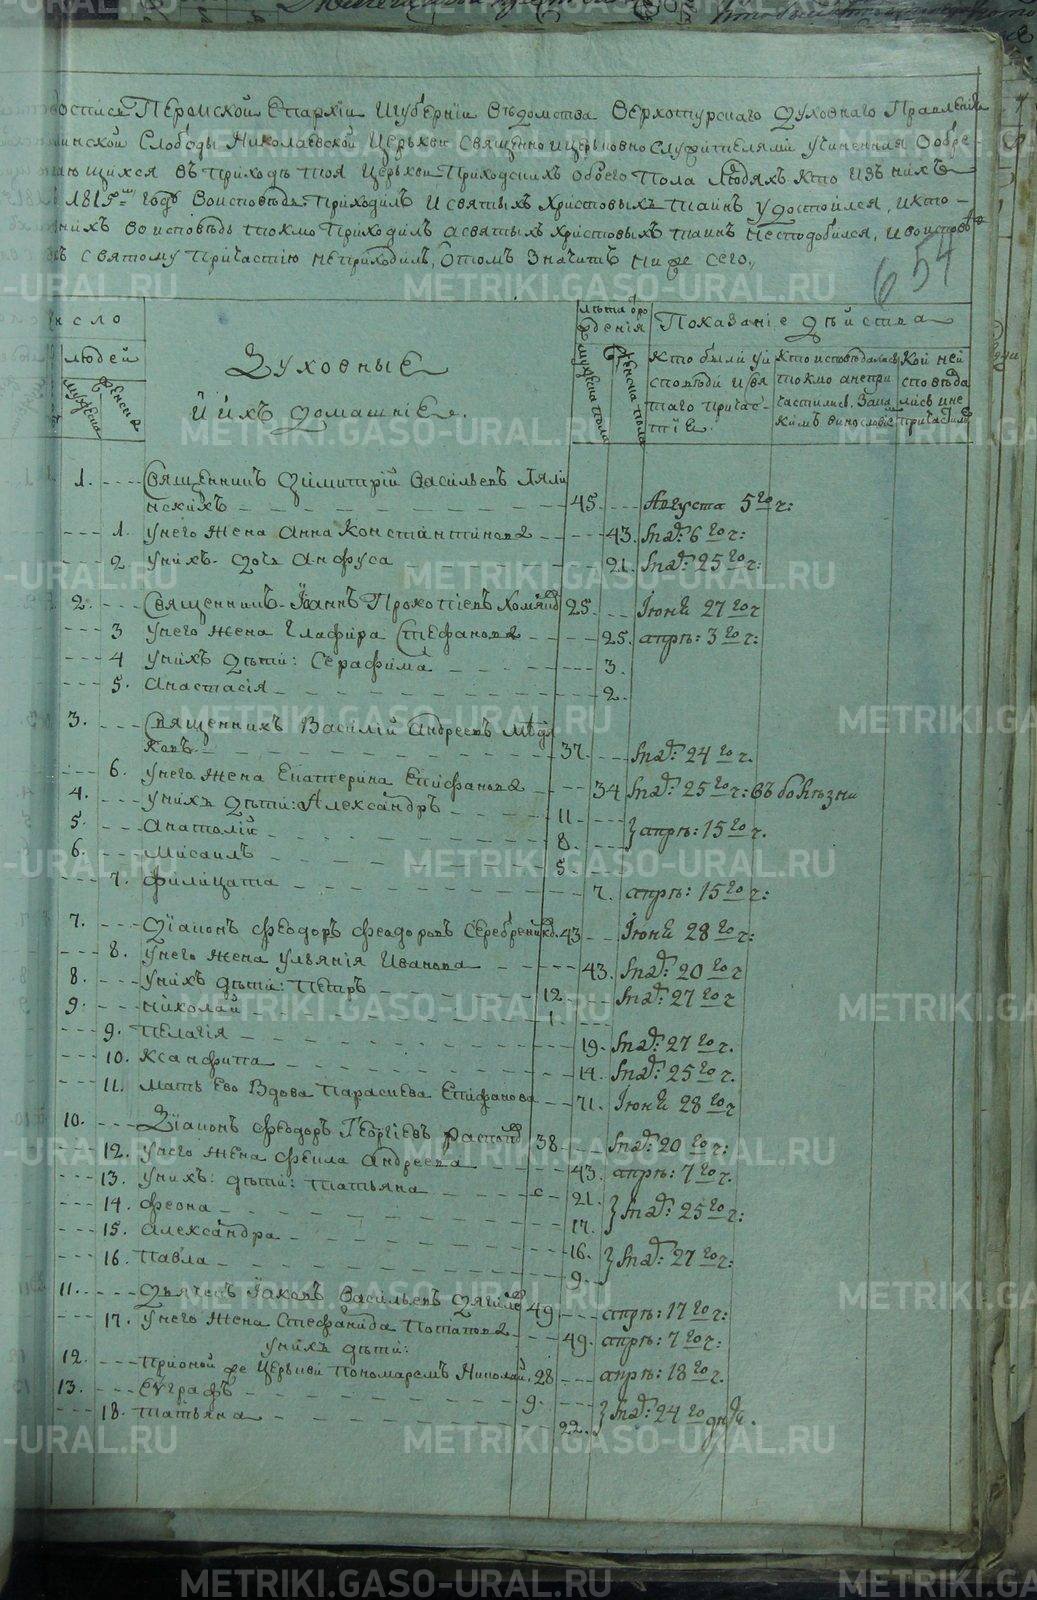 Роспись Пермской Епархіи Игуберніи Вѣдомства Верхотурскаго Духовнаго Правленія
инской Слободы Николаевской Церькви Священно ицерьковно Служителями учиненная Ообре-
тающихся въ приходѣ тоя Церькви Приходскихъ обоего Пола Людяхъ Кто Изъ нихъ
1815 годѣ Воисповѣдь Приходилъ И святыхъ Христовыхъ таинъ удостоился, и кто
нихъ во исповѣдь токмо Приходилъ а святыхъ христовыхъ таинъ не сподобился,
святому причастію не приходилъ, о томъ Значитъ ниже сего.
654
число
людей
мужеска
женска
Духовные
И ихъ домашніе.
лѣта оро
жденія
мужеска пола
женска пола
Показаніе дѣйства
Кто были уи
споведи и свя
таго причас-
тіе.
Кто исповедались
токмо анепри
частились. Зака
кимъ винословіем
Кои неи
споведа
лись ине
причастил
1. Священникъ Димитрій Васильевъ Ляли
нскихъ 45. Августа 5го ч:
1. У него жена Анна Константинова 43. 6го ч:
2 У нихъ дочь Анфуса 21. 25го ч:
2. Священникъ Іоаннъ Прокопіевъ 25 Іюня 27го ч
3 У него жена Глафира Стефанова 25. апрѣ: 3го ч:
4 У нихъ дѣти: Серафима 3.
5. Анастасія 2.
3. Священникъ Василій Андреевъ
ковъ 37. 24го ч.
6. У него жена Екатерина Епифанова 34 25го ч: въ болѣзни
4. У нихъ дѣти: Александръ 11
5. Анатолій 8. апрѣ: 15го ч.
6. Мисаилъ 5
7. Филицата 7. апрѣ: 15го ч:
7. Діаконъ Феодоръ Феодоровъ Серебреник 43 Іюня 28го ч:
8. У него жена Ульянія Иванова 43. 20го ч
8. У нихъ дѣти: Петръ 12 27го ч
9. Николай 1.
9. Пелагія 19. 27го ч.
10. Ксанфипа 14. 25го ч.
11. Мать Ево Вдова Параскева Епифанова 71. Іюня 28го ч
10. Діаконъ Феодоръ Георгіевъ 38 20го ч:
12. У него жена Фекла Андреева 43. апрѣ: 7го ч.
13. У нихъ: дѣти: Татьяна 21.
14. Феона 17. 25го ч:
15. Александра 16.
16. Павла 9. 27го ч:
11. Дьячекъ Іаковъ Васильевъ 49 апрѣ: 17го ч:
17. У него жена Стефанида Потапова 49. апрѣ: 7го ч:
У нихъ дѣти:
12. При оной же Церькви Пономаремъ Николай 28 апрѣ: 18го ч.
13. Евграфъ 9.
18. Татьяна 22. 24го дня.
METRIKI.GASO-URAL.RU